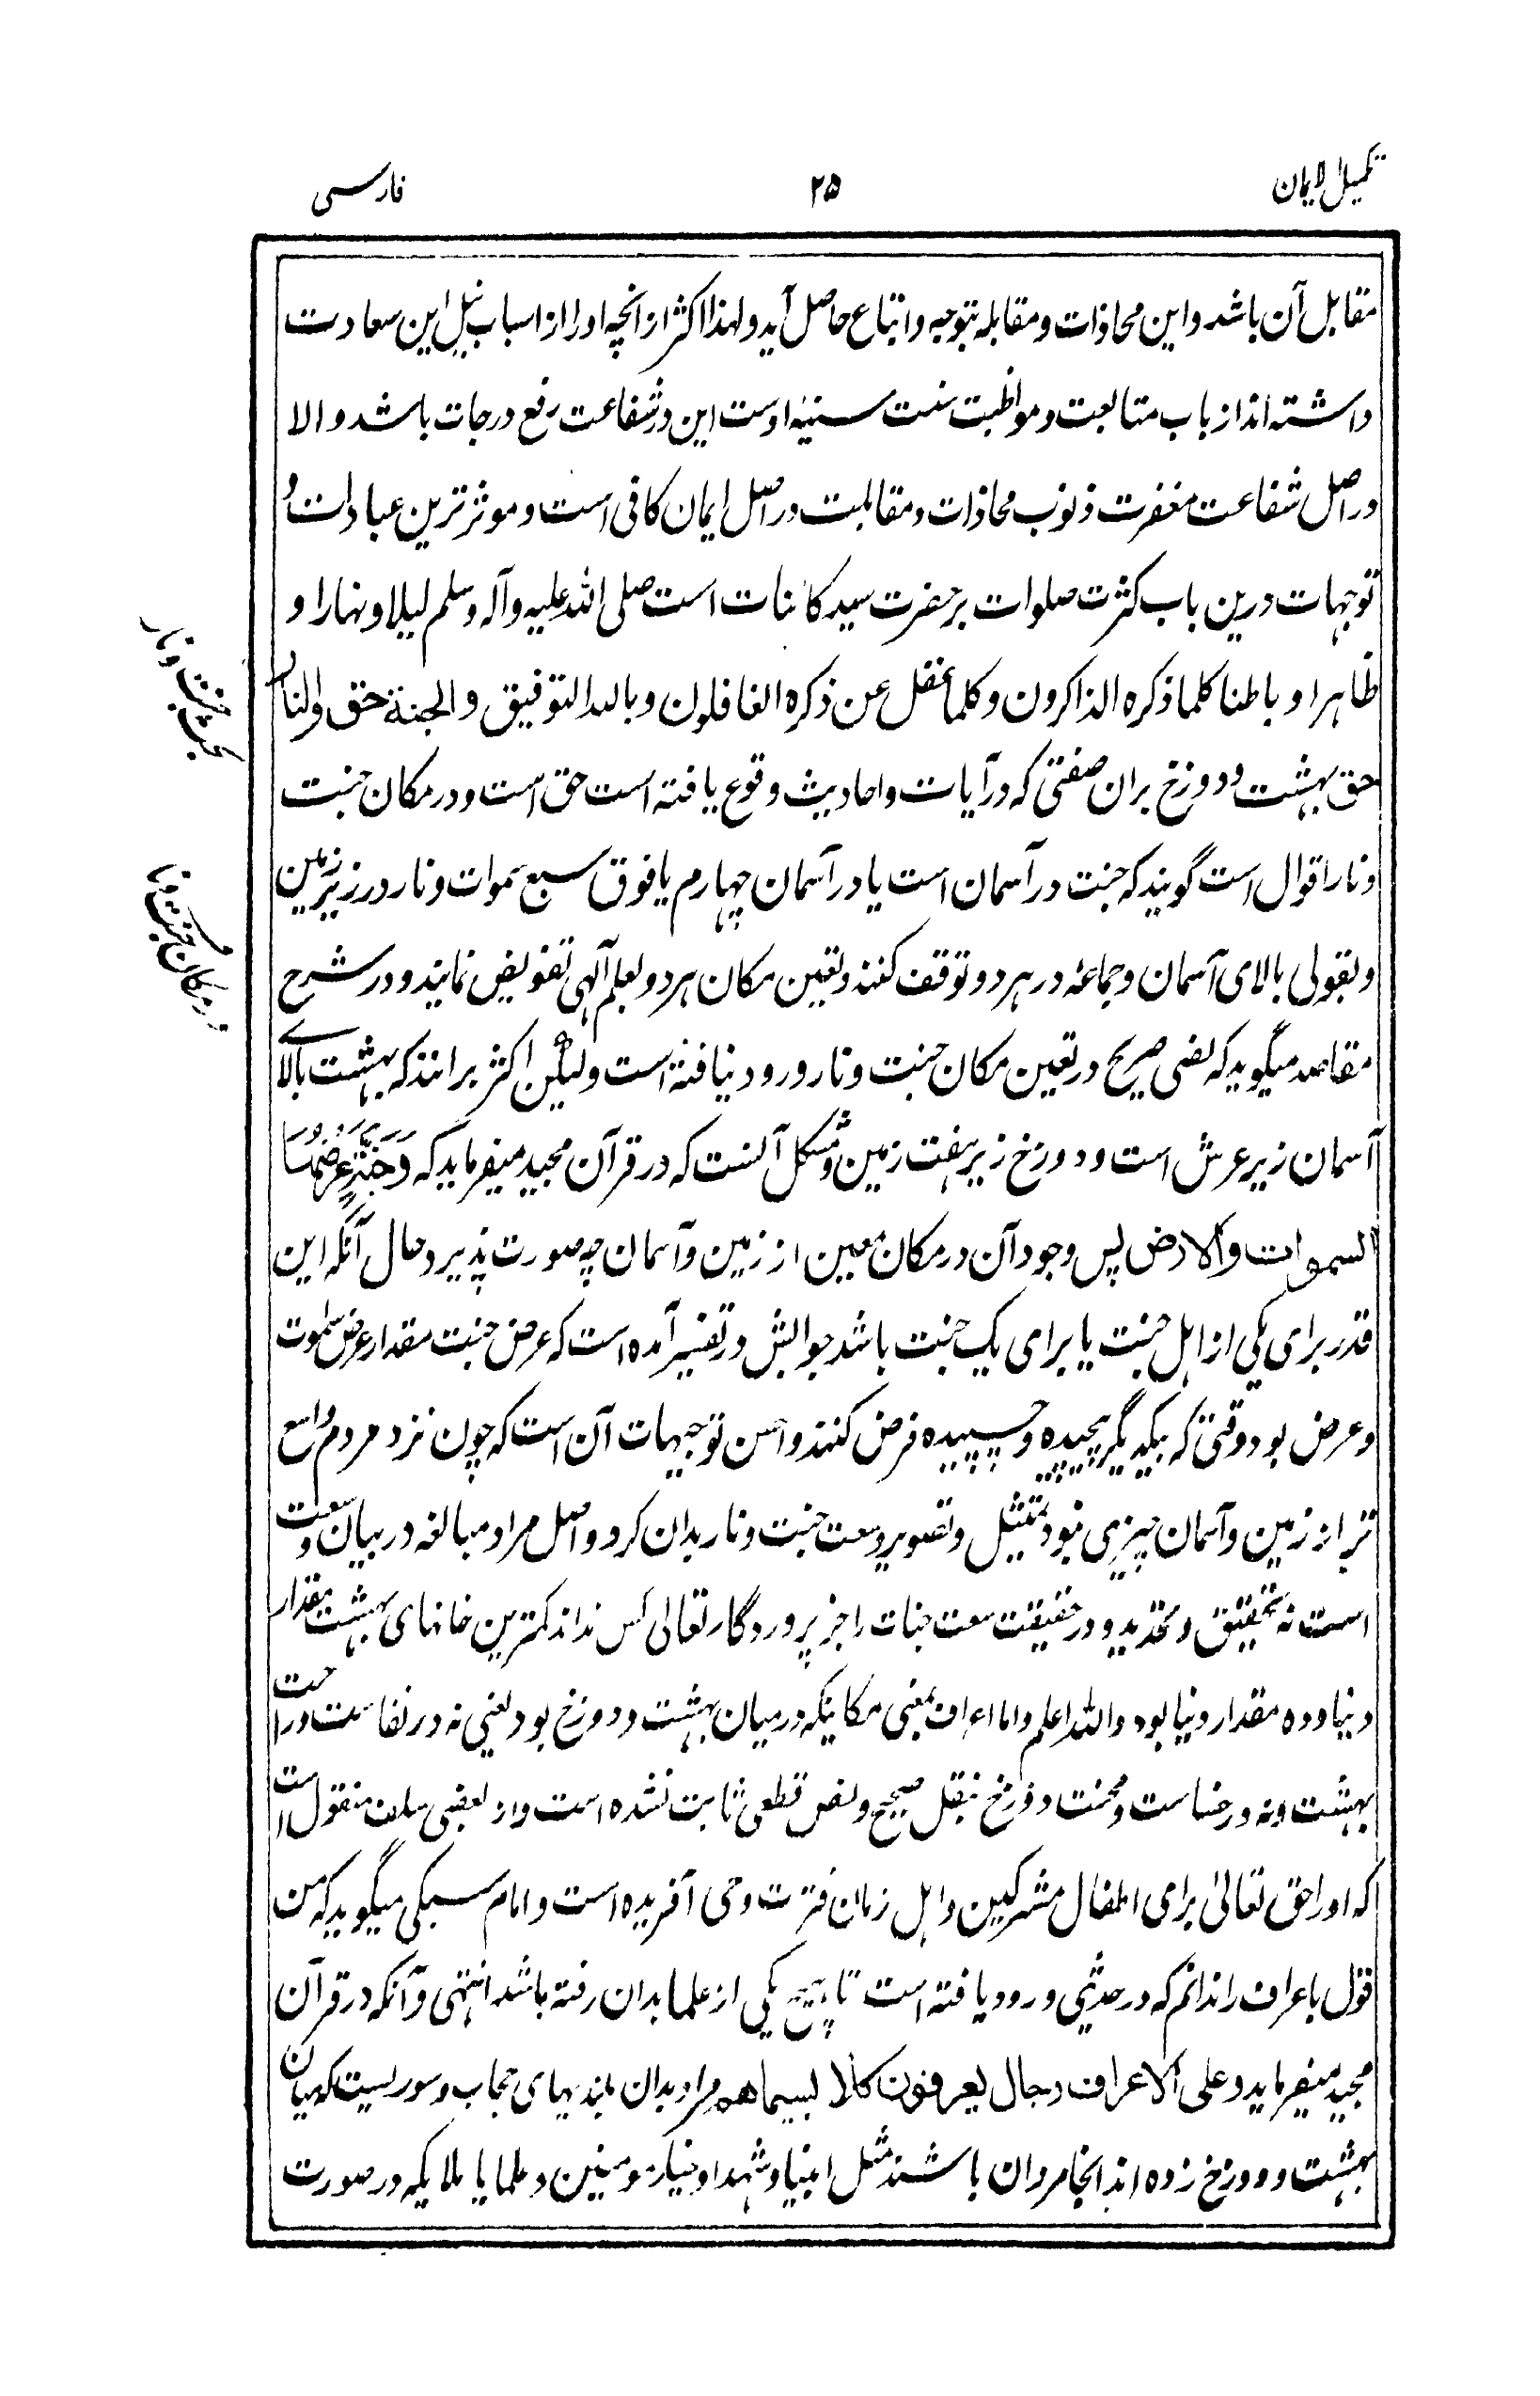 تکمیل الایمان
۲۵
فارسی
مقابل آن باشد و این محاذات و مقابله بتوجه و اتباع حاصل آید و لهذا اکثر از انچه او را از اسباب نیل این سعادت
داشته اند از باب متابعت و مواظبت سنت سنیۀ اوست این در شفاعت رفع درجات باشد و الا
در اصل شفاعت مغفرت ذنوب محاذات و مقابلت در اصل ایمان کافی است و موثر ترین عبادات و
توجهات درین باب کثرت صلوات بر حضرت سید کائنات است صلی الله علیه و آله و سلم لیلا و نهارا و
ظاهرا و باطنا کلما ذکره الذاکرون و کلما غفل عن ذکره الغافلون و بالله التوفیق و الجنة حق والنار
حق بهشت و دوزخ بران صفتی که در آیات و احادیث وقوع یافته است حق است و در مکان جنت
و نار اقوال است گویند که جنت در آسمان است یا در آسمان چهارم یا فوق سبع سموات و نار در زیر زمین
و بقولی بالای آسمان و جماعۀ در هر دو توقف کنند و تعین مکان هر دو بعلم آلهی تفویض نمایند و در شرح
مقاصد میگوید که نصی صریح در تعین مکان جنت و نار ورود نیافته است ولیکن اکثر برانند که بهشت بالای
آسمان زیر عرش است و دوزخ زیر هفت زمین و مشکل آنست که در قرآن مجید میفرماید که وَجَنَّةٍ عَرْضُهَا
السموات والارض پس وجود آن در مکان معین از زمین و آسمان چه صورت پذیرد و حال آنکه این
قدر برای یکی از اهل جنت یا برای یک جنت باشد جوابش در تفسیر آمده است که عرض جنت مقدار عرض سموت
و عرض بود وقتی که بیکدیگر پیچیده و چسپیده فرض کنند و احسن توجیهات آن است که چون نزد مردم واسع
تر از زمین و آسمان چیزی نبود تمثیل و تصویر وسعت جنت و نار بدان کرد و اصل مراد مبالغه در بیان وسعت
است نه تحقیق و تحدید و در حقیقت سعت جنات را جز پروردگار تعالی کس نداند کمترین خانهای بهشت مقدار
دنیا و ده مقدار دنیا بود والله اعلم و اما اعراف بمعنی مکانیکه درمیان بهشت و دوزخ بود یعنی نه در نفاست و راحت
بهشت و نه در خساست و محنت دوزخ بنقل صحیح و نص قطعی ثابت نشده است و از بعضی سلف منقول است
که او را حق تعالی برای اطفال مشرکین و اهل زمان فترت وحی آفریده است و امام سبکی میگوید که من
قول باعراف را ندانم که در حدیثی ورود یافته است تا هیچ یکی از علما بدان رفته باشد انتهی و آنکه در قرآن
مجید میفرماید و علی الاعراف رجال یعرفون کلا بسیماهم مراد بدان بلندیهای حجاب و سوریست که میان
بهشت و دوزخ زده اند آنجا مردان باشند مثل انبیا و شهدا و خیار مؤمنین و علما یا ملایکه در صورت
بحث جنت و نار
در مکان جنت و نار